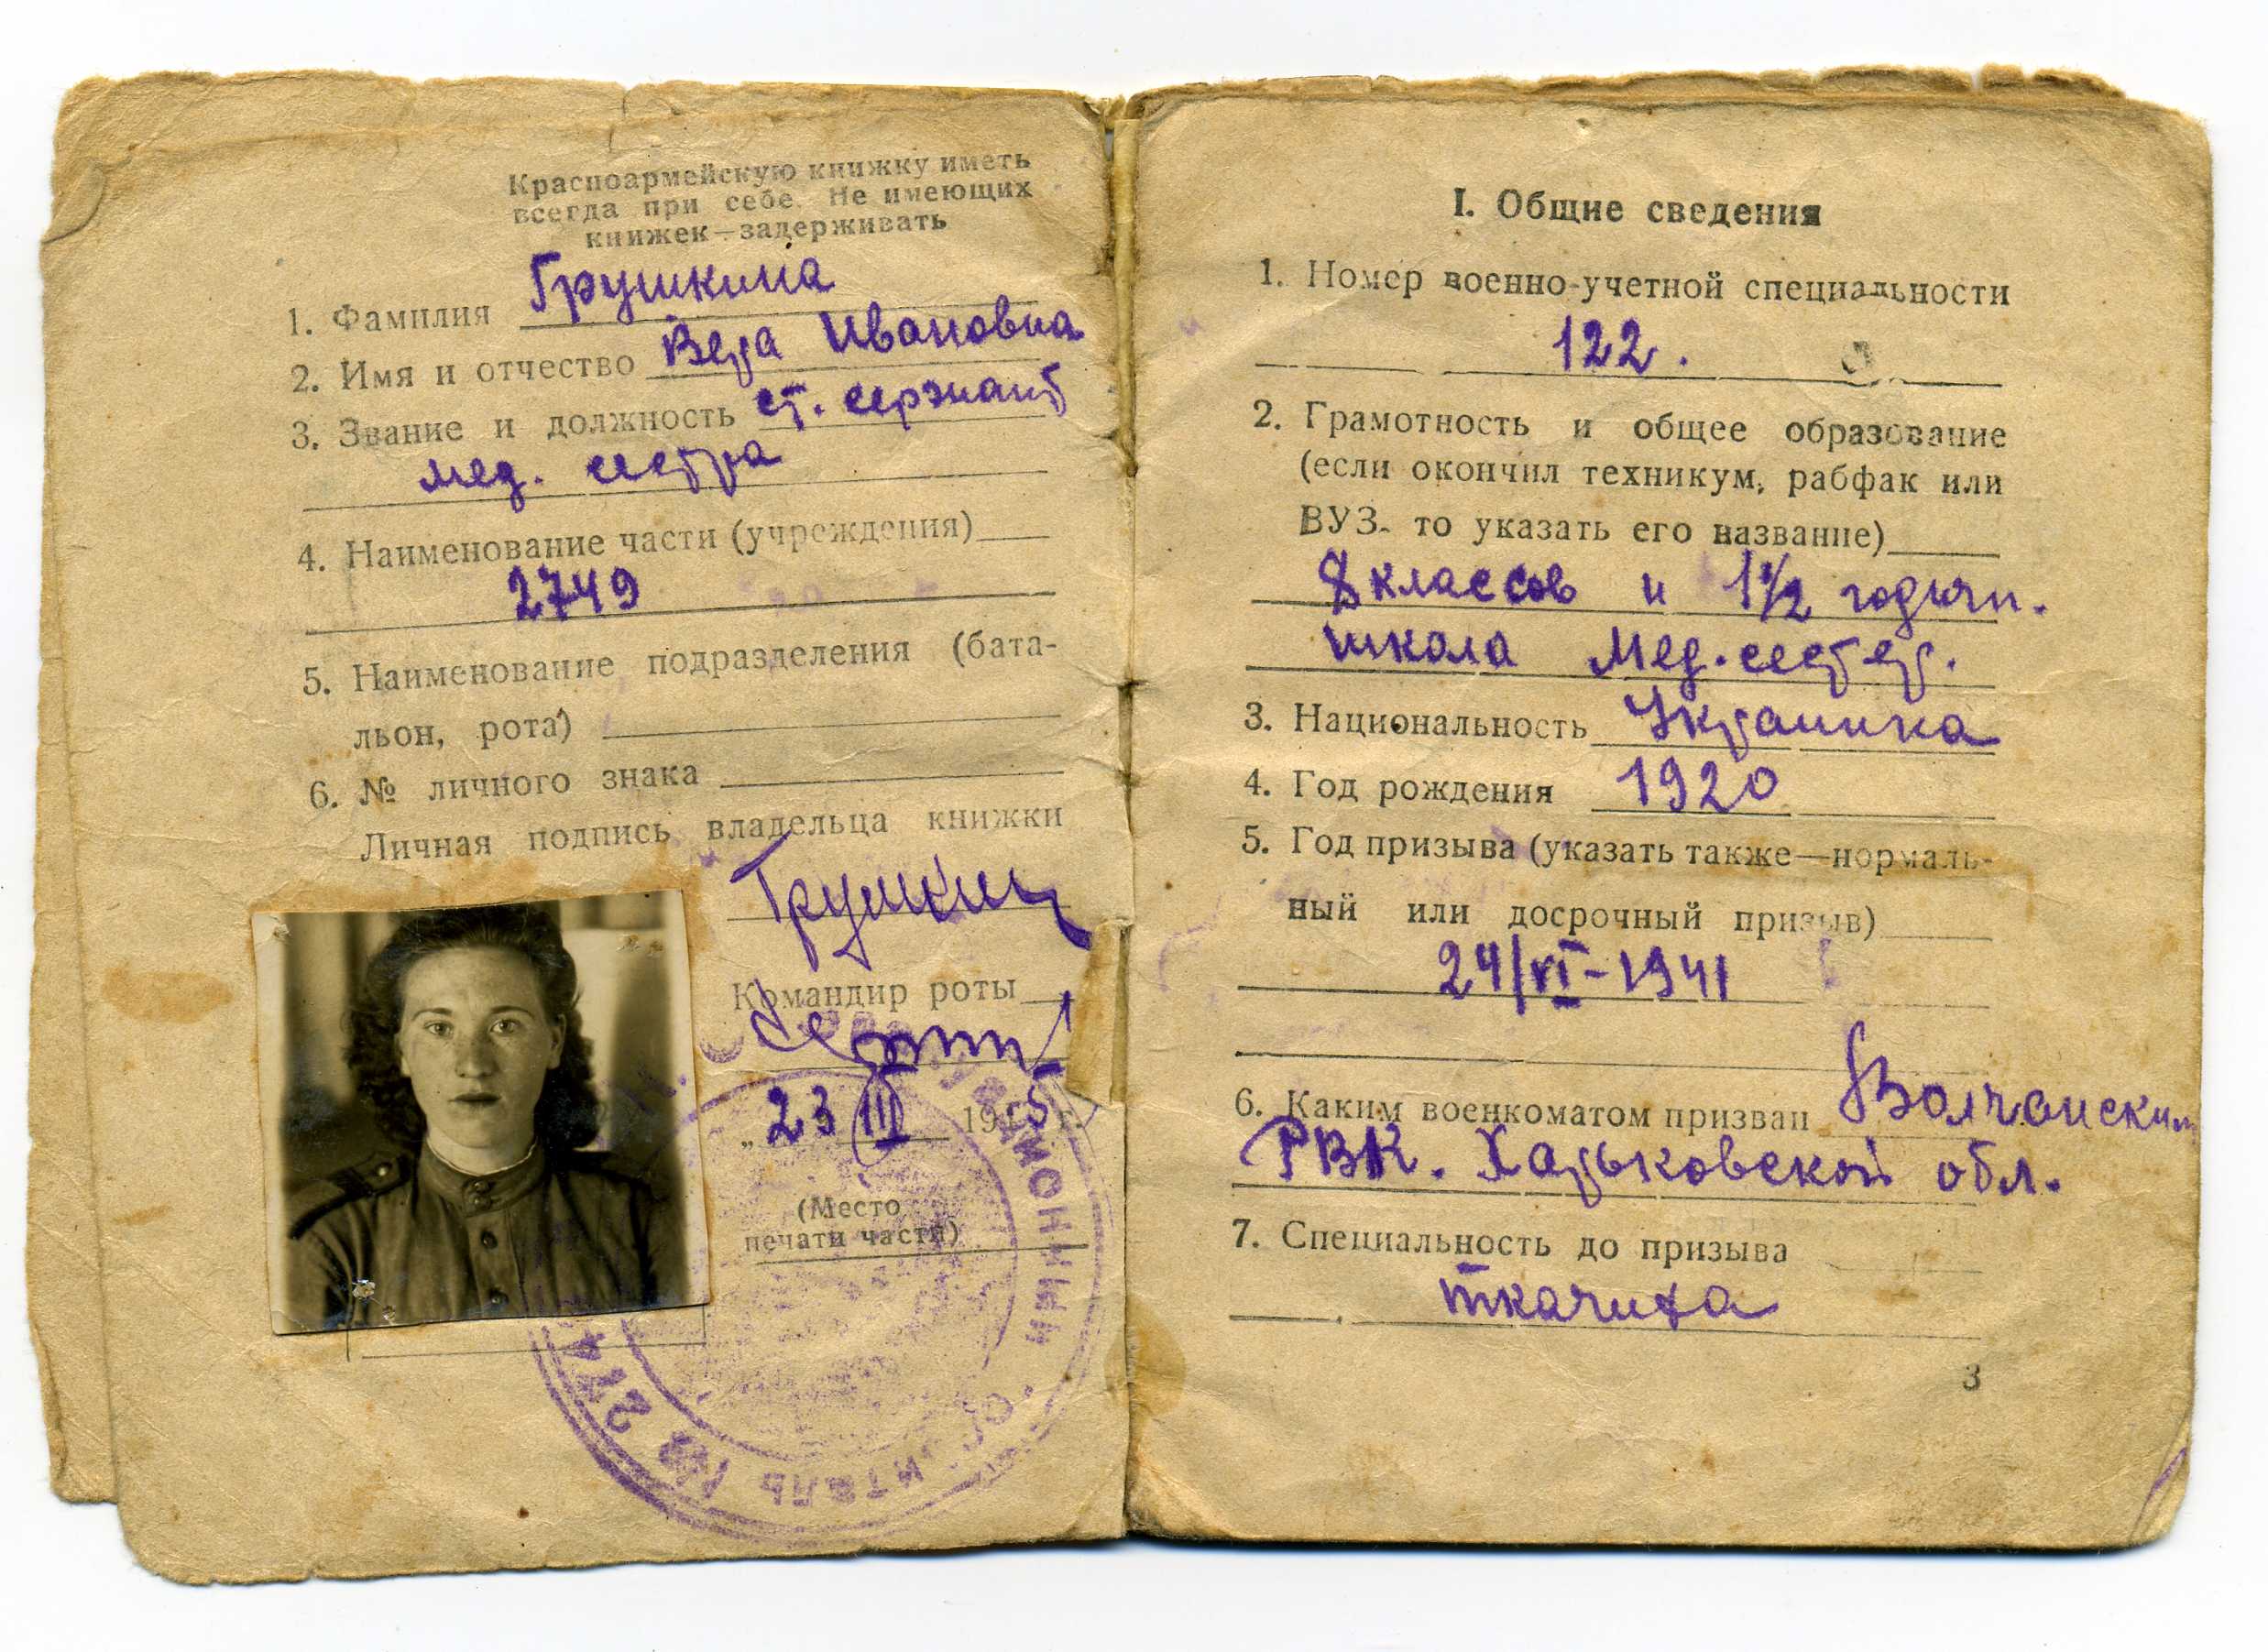 Красноармейскую книжку иметь
всегда при себе. Не имеющих
книжек—задерживать
1. Фамилия Грушкина
2. Имя и отчество Вера Ивановна
3. Звание и должность ст. сержант
мед. сестра
4. Наименование части (учреждения)
2749
5. Наименование подразделения (бата-
льон, рота)
6. № личного знака
Личная подпись владельца книжки
Грушкин
Командир роты
„23 III 1945 г.
(Место
печати части)
I. Общие сведения
1. Номер военно-учетной специальности
122.
2. Грамотность и общее образование
(если окончил техникум, рабфак или
ВУЗ, то указать его название)
8 классов и 1 1/2 годичн.
школа Мед. сестер.
3. Национальность Украинка
4. Год рождения 1920
5. Год призыва (указать также—нормаль-
ный или досрочный призыв)
24/VI-1941
6. Каким военкоматом призван Волчанским
РВК. Харьковской обл.
7. Специальность до призыва
ткачиха
3